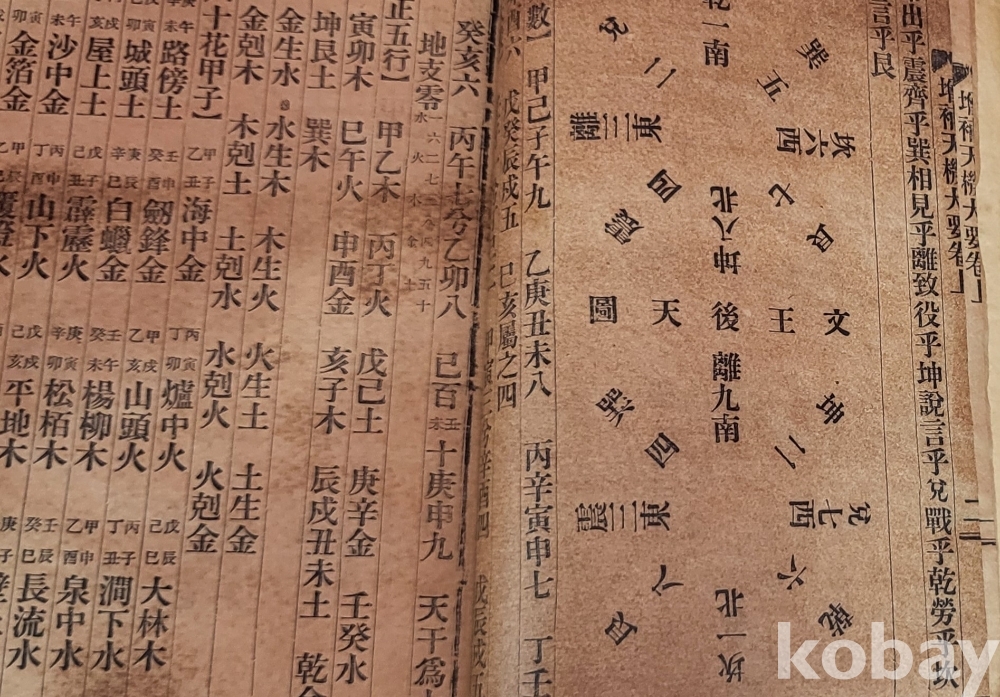 增補天機大要卷上
增補天機大要卷上 二
出乎震齊乎巽相見乎離致役乎坤說言乎兌戰乎乾勞乎坎
言乎艮
巽五
坎六西
七艮
一南
坤八北
二兌
離三東
四震
文王後天圖
離九南
坤二
兌七西
六乾
坎一北
八艮
震三東
四巽
數】 甲己子午九 乙庚丑未八 丙辛寅申七 丁壬
酉六 戊癸辰戌五 巳亥屬之四
癸亥六 丙午七兮乙卯八 己百 十庚申九 天干爲
地支零 水一六 火二七
正五行】 甲乙木 丙丁火 戊己土 庚辛金 壬癸水
寅卯木 巳午火 申酉金 亥子木 辰戌丑未土 乾金
坤艮土 巽木
金生水 水生木 木生火 火生土 土生金
金剋木 木剋土 土剋水 水剋火 火剋金
十花甲子】 甲子乙丑海中金 丙寅丁卯爐中火 戊辰己巳大林木
午未路傍土 壬申癸酉劒鋒金 甲戌乙亥山頭火 丙子丁丑澗下水
寅卯城頭土 庚辰辛巳白蠟金 壬午癸未楊柳木 甲申乙酉泉中水
屋上土 戊子己丑霹靂火 庚寅辛卯松栢木 壬辰癸巳長流水
午未沙中金 丙申丁酉山下火 戊戌己亥平地木 庚子
寅卯金箔金
kobay